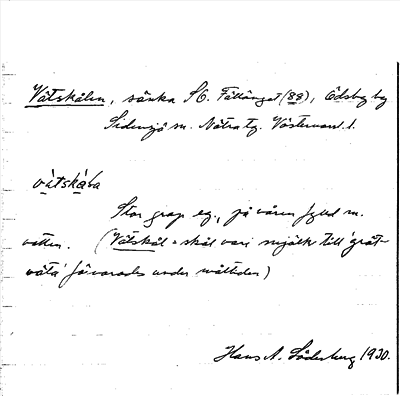 Våtskålen, sänka SO. Fällänget (88), Ödsby by
Sidensjö sn. Nätra tg. Västernorrl. l.
våtskåla
Stor grop eg., på våren fylld m.
vatten. (Våtskål = skål vari mjölk till 'gröt-
väta' förvarades under måltiden)
Hans A. Söderberg 1930.